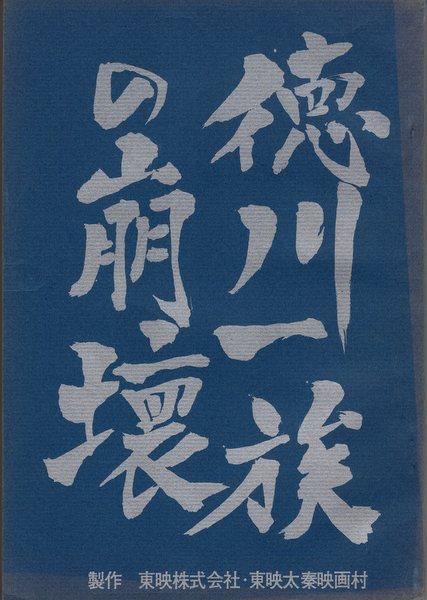 徳川一族
の崩壊
製作　東映株式会社・東映太秦映画村